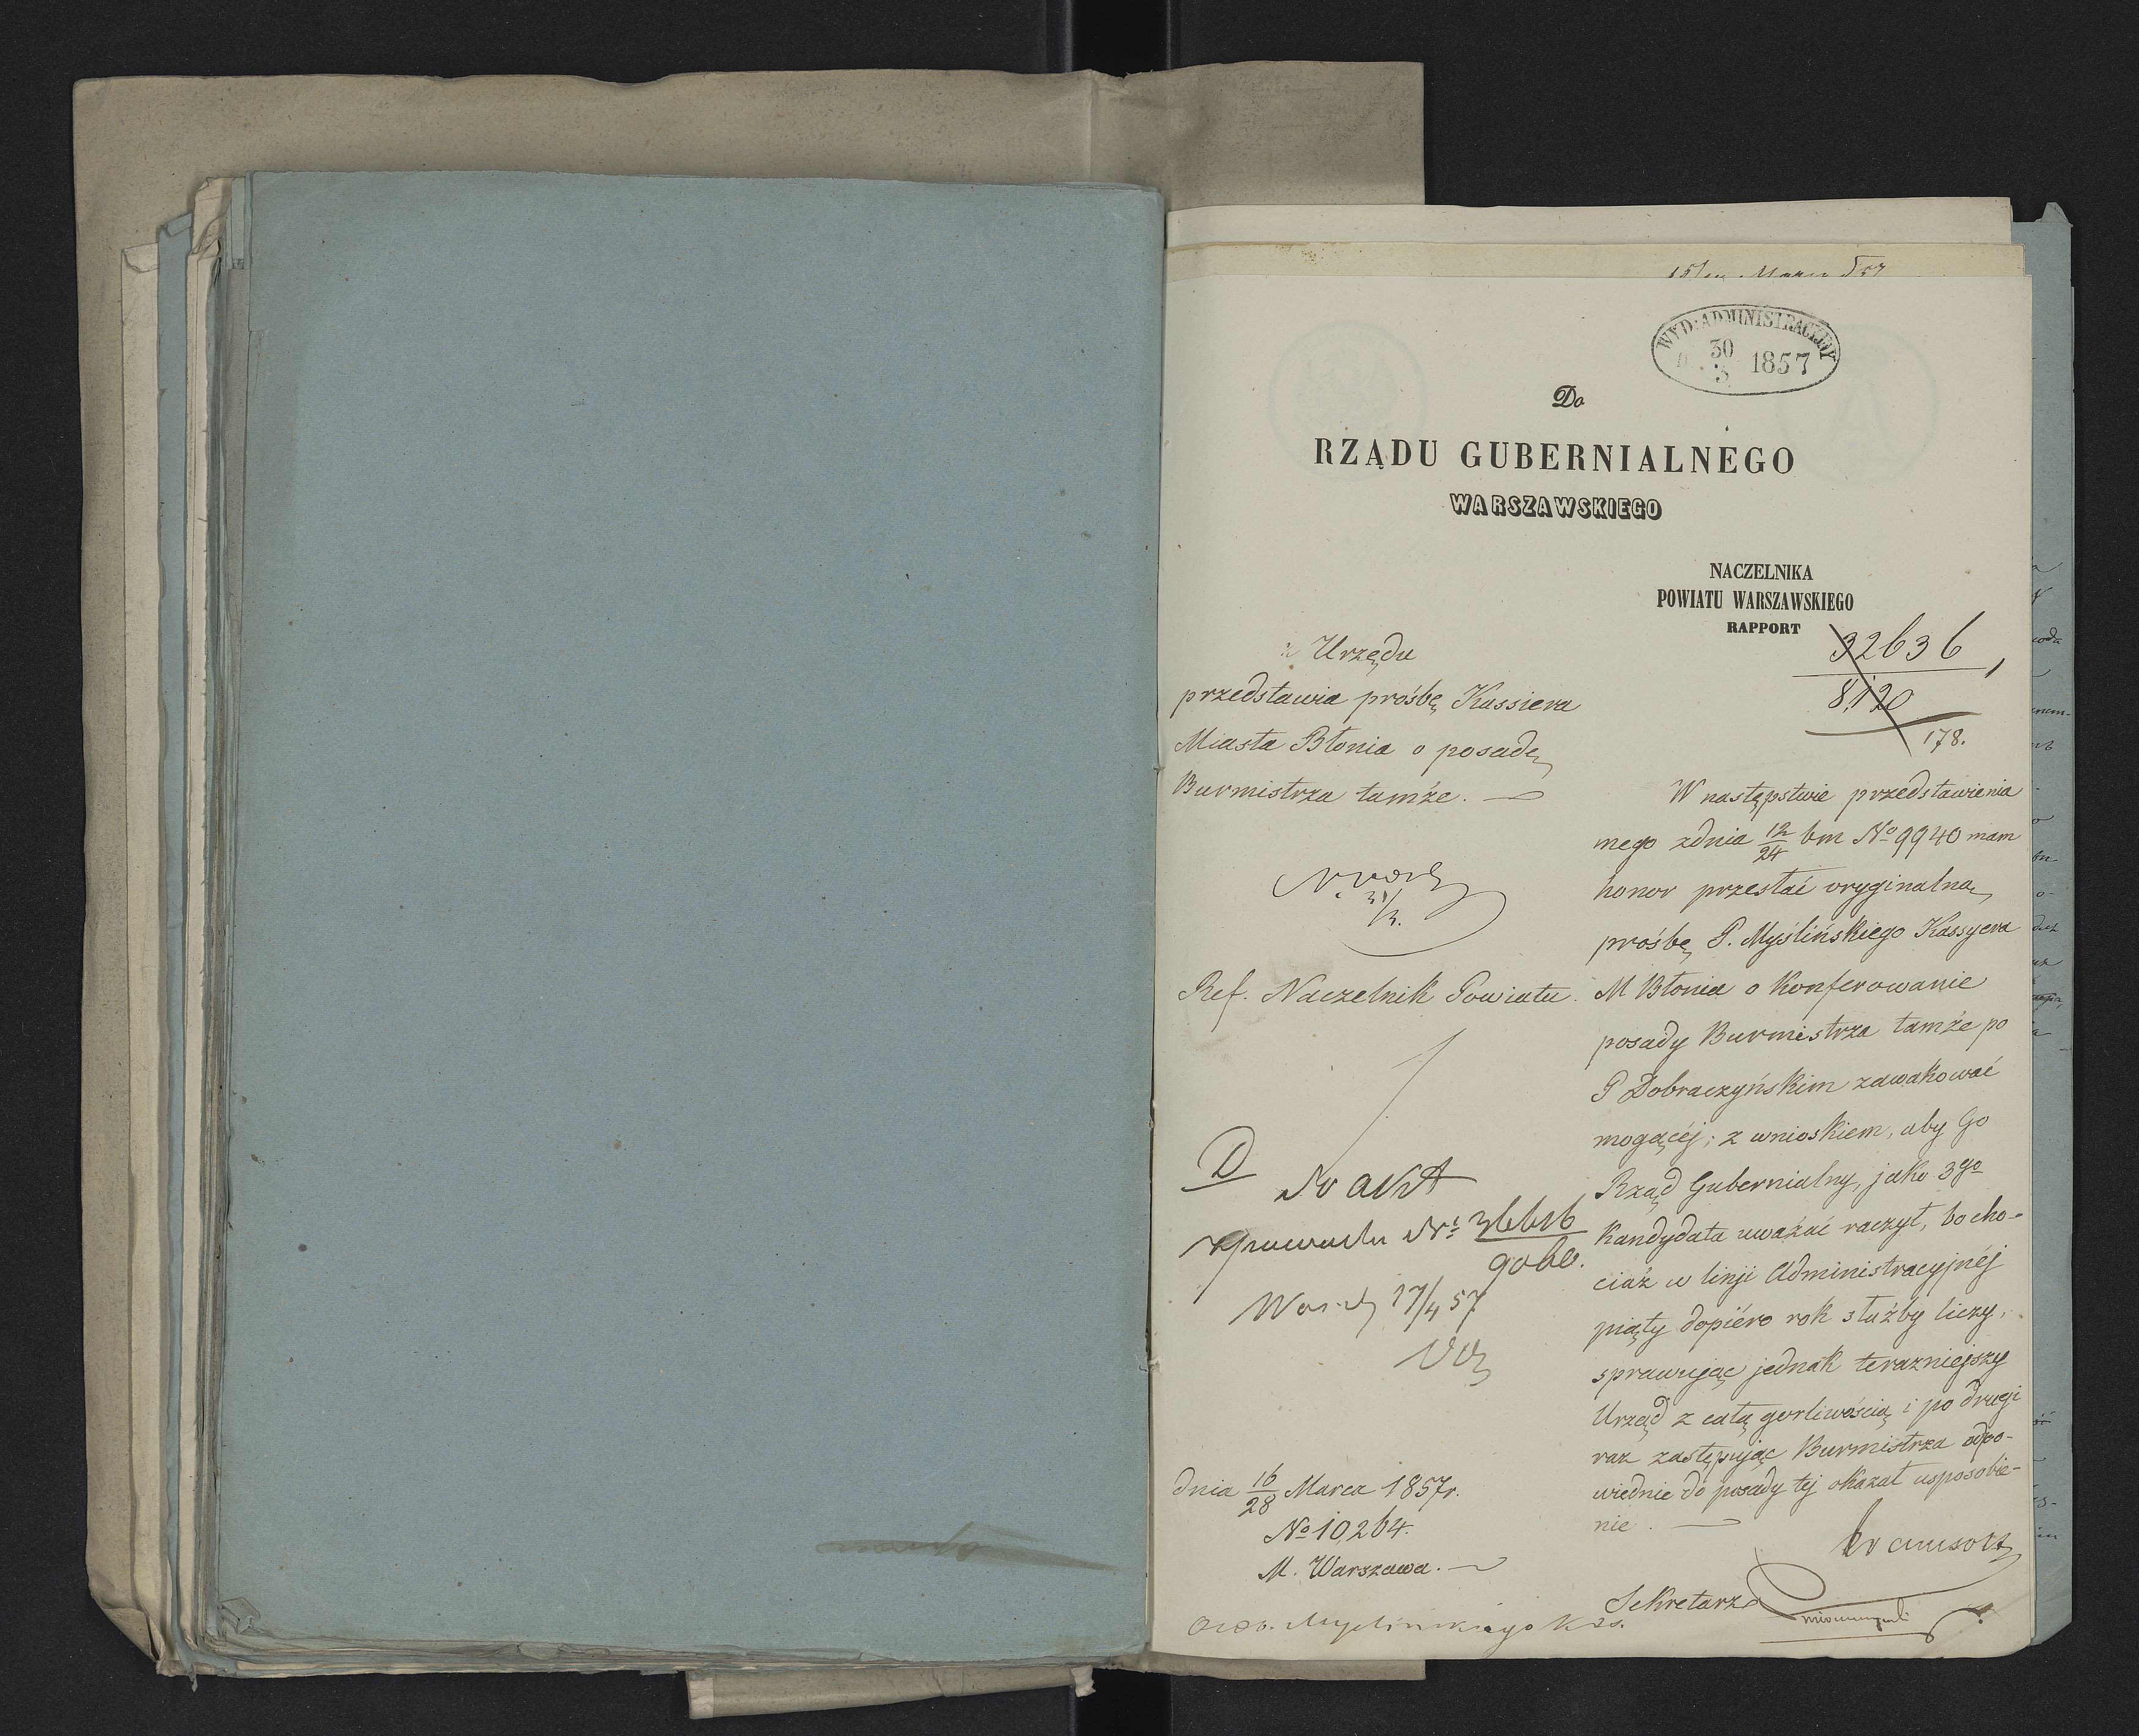 WYD: ADMINISTRACYJNY
30
3 1857
Do
RZĄDU GUBERNIALNEGO
WARSZAWSKIEGO
NACZELNIKA
POWIATU WARSZAWSKIEGO
RAPPORT
32636
8,120
178.
z Urzędu
przedstawia prośbę Kassiera
Miasta Błonia o posadę
Burmistrza tamże.
31/3.
Ref. Naczelnik Powiatu.
W następstwie przedstawienia
mego zdnia 12/24 bm Nº 9940 mam
honor przesłać oryginalną
prośbę P. Myślińskiego Kassyera
M Błonia o konferowanie
posady Burmistrza tamże po
P Dobraczyńskim zawakować
mogącéj; z wnioskiem, aby Go
Rząd Gubernialny, jako 3go
kandydata uważać raczył, bo cho-
ciaż w linji Administracyjnéj
piąty dopiéro rok służby liczy,
sprawując jednak terazniejszy
Urząd z całą gorliwością i po drugi
raz zastępując Burmistrza odpo-
wiednie do posady tej okazał usposobie-
nie.
D
Do akt
17/4 57
dnia 16/28 Marca 1857r.
Nº 10,264.
M. Warszawa.
Sekretarz
Myślińskiego